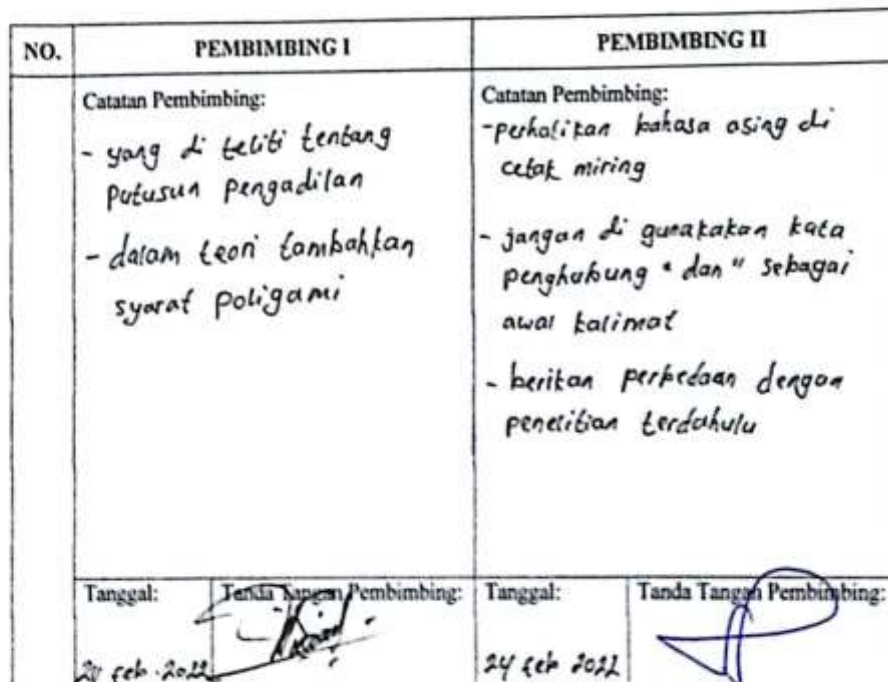 NO.
PEMBIMBING I
PEMBIMBING II
Catatan Pembimbing:
- yang di teliti tentang
putusun pengadilan
- dalam teori tambahkan
syarat poligami
Catatan Pembimbing:
- perhatikan bahasa asing di
cetak miring
- jangan di gunakakan kata
penghubung "dan" sebagai
awal kalimat
- berikan perbedaan dengan
penelitian terdahulu
Tanggal:
Tanda Tangan Pembimbing:
feb. 2022
Tanggal:
Tanda Tangan Pembimbing:
24 feb 2022